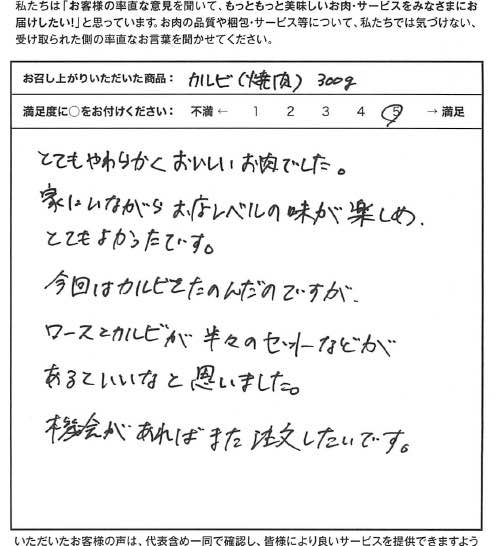 私たちは「お客様の率直な意見を聞いて、もっともっと美味しいお肉・サービスをみなさまにお
届けしたい!」と思っています。お肉の品質や梱包・サービス等について、私たちでは気づけない、
受け取られた側の率直なお言葉を聞かせてください。
お召し上がりいただいた商品： カルビ(焼肉) 300g
満足度に○をお付けください： 不満 ← 1 2 3 4 5 → 満足
とてもやわらかくおいしいお肉でした。
家にいながらお店レベルの味が楽しめ、
とてもよかったです。
今回はカルビをたのんだのですが、
ロースとカルビが半々のセットなどが
あるといいなと思いました。
機会があればまた注文したいです。
いただいたお客様の声は、代表含め一同で確認し、皆様により良いサービスを提供できますよう